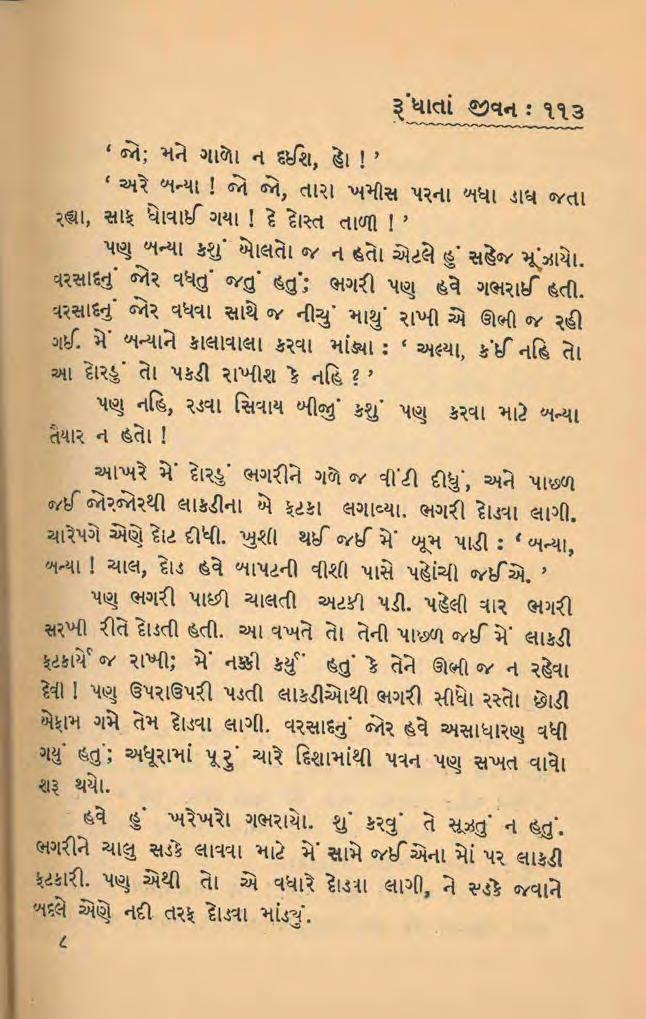 રૂંધાતાં જીવન : ૧૧૩
‘ જો; મને ગાળો ન દઈશ, હો ! ’
‘ અરે બન્યા ! જો જો, તારા ખમીસ પરના બધા ડાઘ જતા
રહ્યા, સાફ ધોવાઈ ગયા ! દે દોસ્ત તાળી ! ’
પણ બન્યા કશું બોલતો જ ન હતો એટલે હું સહેજ મૂંઝાયો.
વરસાદનું જોર વધતું જતું હતું; ભગરી પણ હવે ગભરાઈ હતી.
વરસાદનું જોર વધવા સાથે જ નીચું માથું રાખી એ ઊભી જ રહી
ગઈ. મેં બન્યાને કાલાવાલા કરવા માંડ્યા : ‘ અલ્યા, કંઈ નહિ તો
આ દોરડું તો પકડી રાખીશ કે નહિ ? ’
પણ નહિ, રડવા સિવાય બીજું કશું પણ કરવા માટે બન્યા
તૈયાર ન હતો !
આખરે મેં દોરડું ભગરીને ગળે જ વીંટી દીધું, અને પાછળ
જઈ જોરજોરથી લાકડીના બે ફટકા લગાવ્યા. ભગરી દોડવા લાગી.
ચારેપગે એણે દોટ દીધી. ખુશી થઈ જઈ મેં બૂમ પાડી : ‘ બન્યા,
બન્યા ! ચાલ, દોડ હવે બાપટની વીશી પાસે પહોંચી જઈએ. ’
પણ ભગરી પાછી ચાલતી અટકી પડી. પહેલી વાર ભગરી
સરખી રીતે દોડતી હતી. આ વખતે તો તેની પાછળ જઈ મેં લાકડી
ફટકાર્યે જ રાખી; મેં નક્કી કર્યું હતું કે તેને ઊભી જ ન રહેવા
દેવી ! પણ ઉપરાઉપરી પડતી લાકડીઓથી ભગરી સીધો રસ્તો છોડી
બેફામ ગમે તેમ દોડવા લાગી. વરસાદનું જોર હવે અસાધારણ વધી
ગયું હતું; અધૂરામાં પૂરું ચારે દિશામાંથી પવન પણ સખત વાવો
શરૂ થયો.
હવે હું ખરેખરો ગભરાયો. શું કરવું તે સૂઝતું ન હતું.
ભગરીને ચાલુ સડકે લાવવા માટે મેં સામે જઈ એના મોં પર લાકડી
ફટકારી. પણ એથી તો એ વધારે દોડવા લાગી, ને સડકે જવાને
બદલે એણે નદી તરફ દોડવા માંડ્યું.
૮